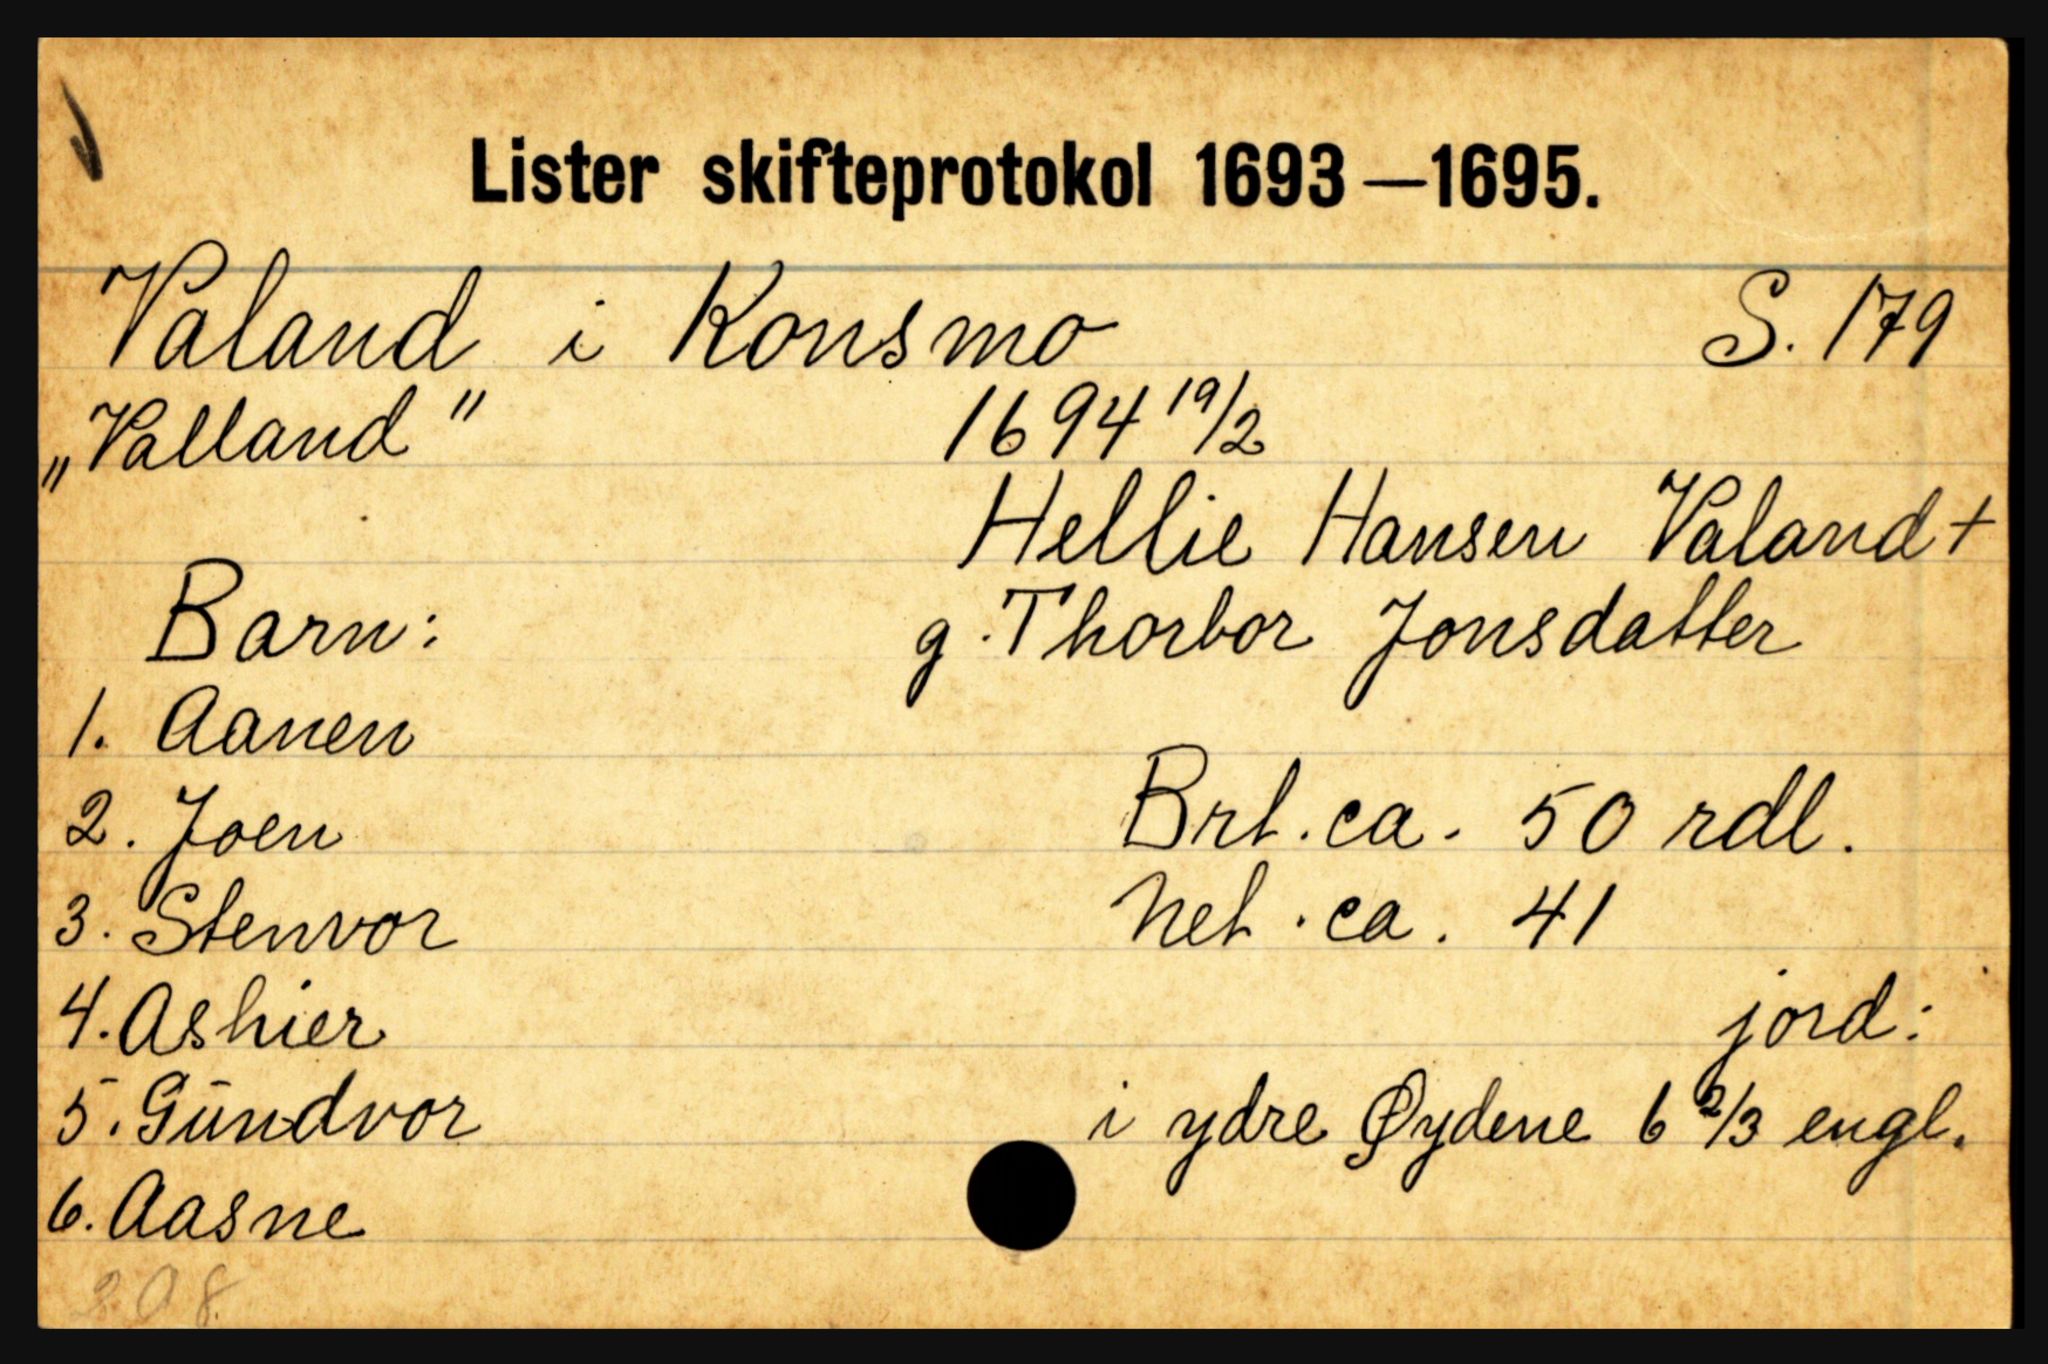 Lister skifteprotokol 1693—1695.
Valand i Konsmo S. 179
„Valland" 1694 19/2
Hellie Hansen Valand +
Barn: g. Thorbor Jonsdatter
1. Aanen
2. Joen Brt. ca. 50 rdl.
3. Stenvor Net. ca. 41
4. Ashier jord:
5. Gūndvor i ydre Øydene 6 2/3 engl.
6. Aasne
208